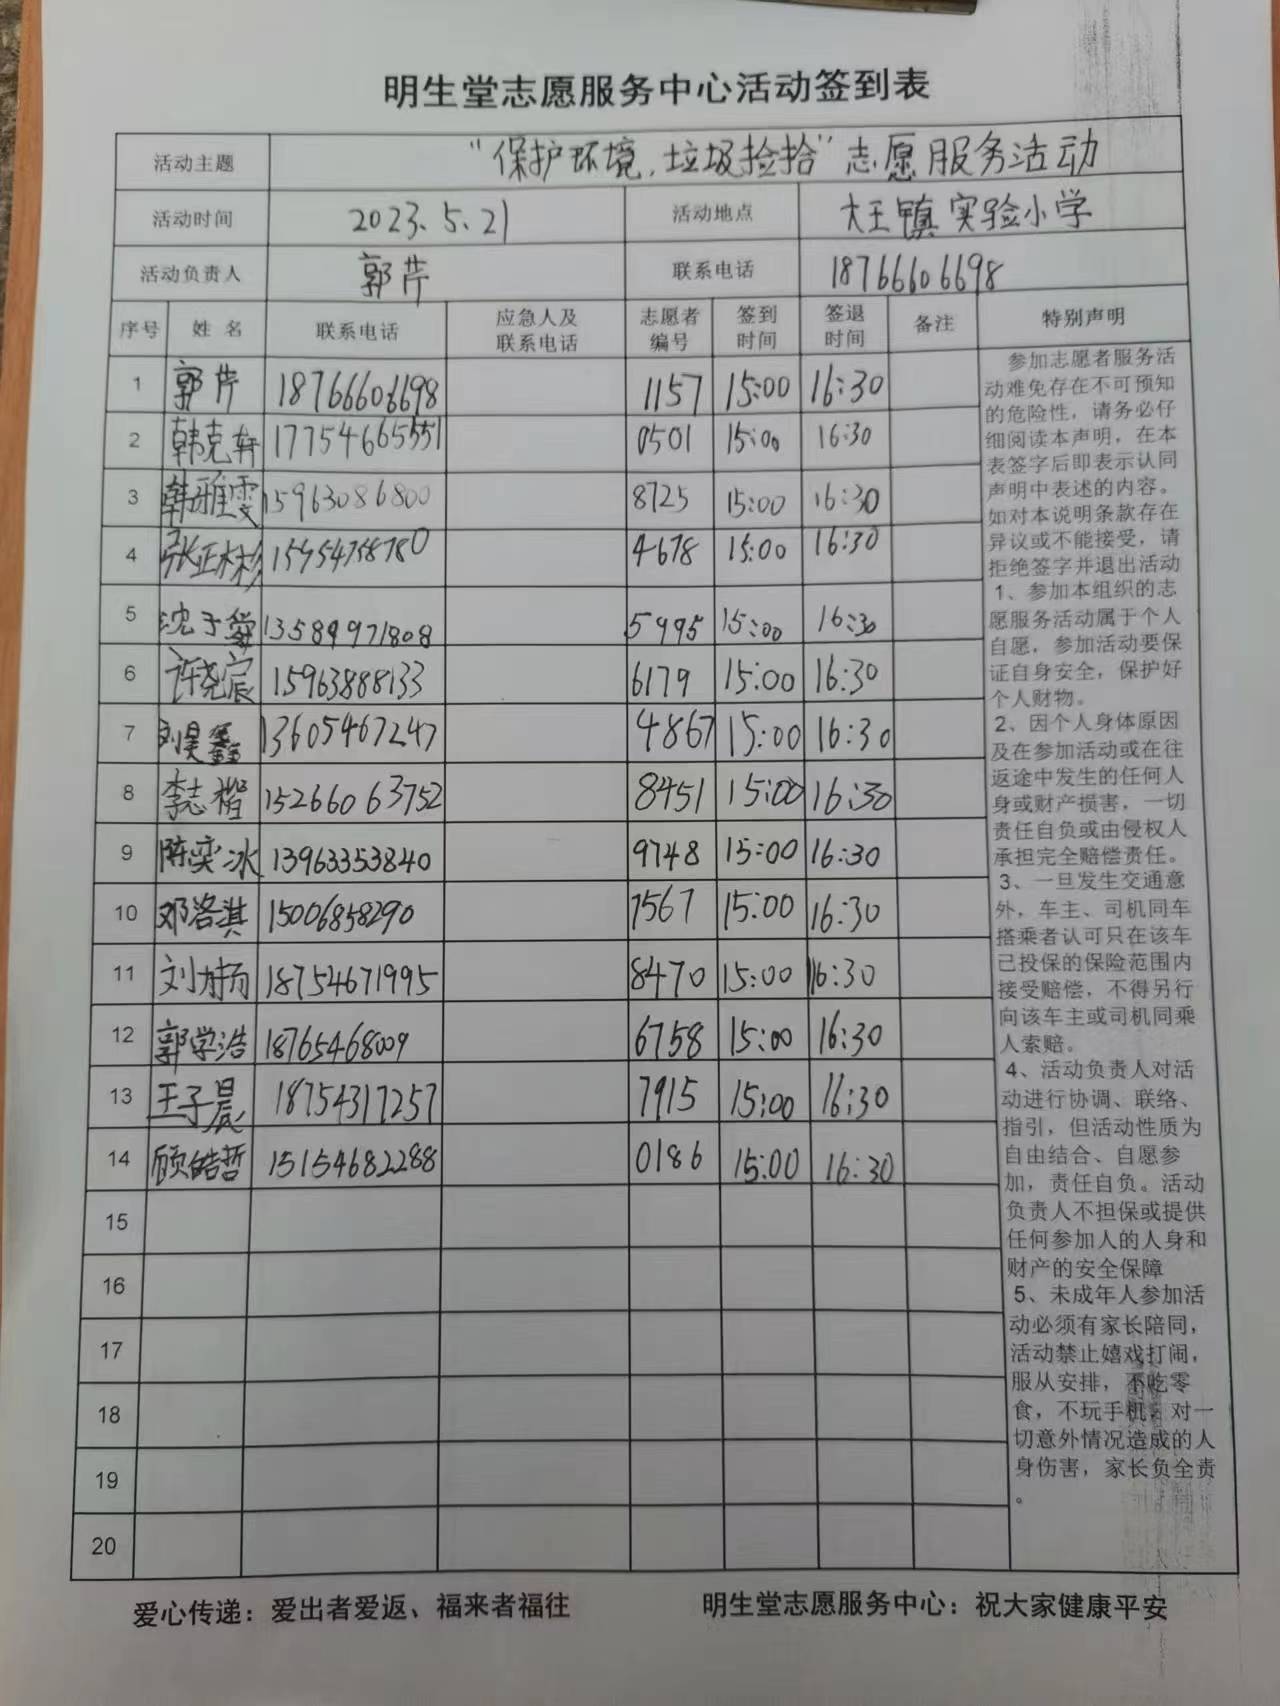 明生堂志愿服务中心活动签到表
活动主题 “保护环境,垃圾捡拾”志愿服务活动
活动时间 2023.5.21 活动地点 大王镇实验小学
活动负责人 郭芹 联系电话 18766606698
序号 姓名 联系电话 应急人及联系电话 志愿者编号 签到时间 签退时间 备注 特别声明
1 郭芹 18766606698 1157 15:00 16:30
2 韩克轩 17754665551 0501 15:00 16:30
3 韩雅雯 15963086800 8725 15:00 16:30
4 张正彬 4678 15:00 16:30
5 沈子 13589971808 5995 15:00 16:30
6 许尧宸 15963888133 6179 15:00 16:30
7 刘昊鑫 13605467247 4867 15:00 16:30
8 李志楷 15266063752 8451 15:00 16:30
9 陈奕冰 13963353840 9748 15:00 16:30
10 邓洛淇 15006858290 7567 15:00 16:30
11 刘 18754671995 8470 15:00 16:30
12 郭学浩 18765468009 6758 15:00 16:30
13 王子晨 18754317257 7915 15:00 16:30
14 顾皓哲 15154682288 0186 15:00 16:30
15
16
17
18
19
20
参加志愿者服务活
动难免存在不可预知
的危险性，请务必仔
细阅读本声明，在本
表签字后即表示认同
声明中表述的内容。
如对本说明条款存在
异议或不能接受，请
拒绝签字并退出活动
1、参加本组织的志
愿服务活动属于个人
自愿，参加活动要保
证自身安全，保护好
个人财物。
2、因个人身体原因
及在参加活动或在往
返途中发生的任何人
身或财产损害，一切
责任自负或由侵权人
承担完全赔偿责任。
3、一旦发生交通意
外，车主、司机同车
搭乘者认可只在该车
已投保的保险范围内
接受赔偿，不得另行
向该车主或司机同乘
人索赔。
4、活动负责人对活
动进行协调、联络、
指引，但活动性质为
自由结合、自愿参
加，责任自负。活动
负责人不担保或提供
任何参加人的人身和
财产的安全保障
5、未成年人参加活
动必须有家长陪同，
活动禁止嬉戏打闹，
服从安排，不吃零
食，不玩手机，对一
切意外情况造成的人
身伤害，家长负全责
。
爱心传递：爱出者爱返、福来者福往 明生堂志愿服务中心：祝大家健康平安